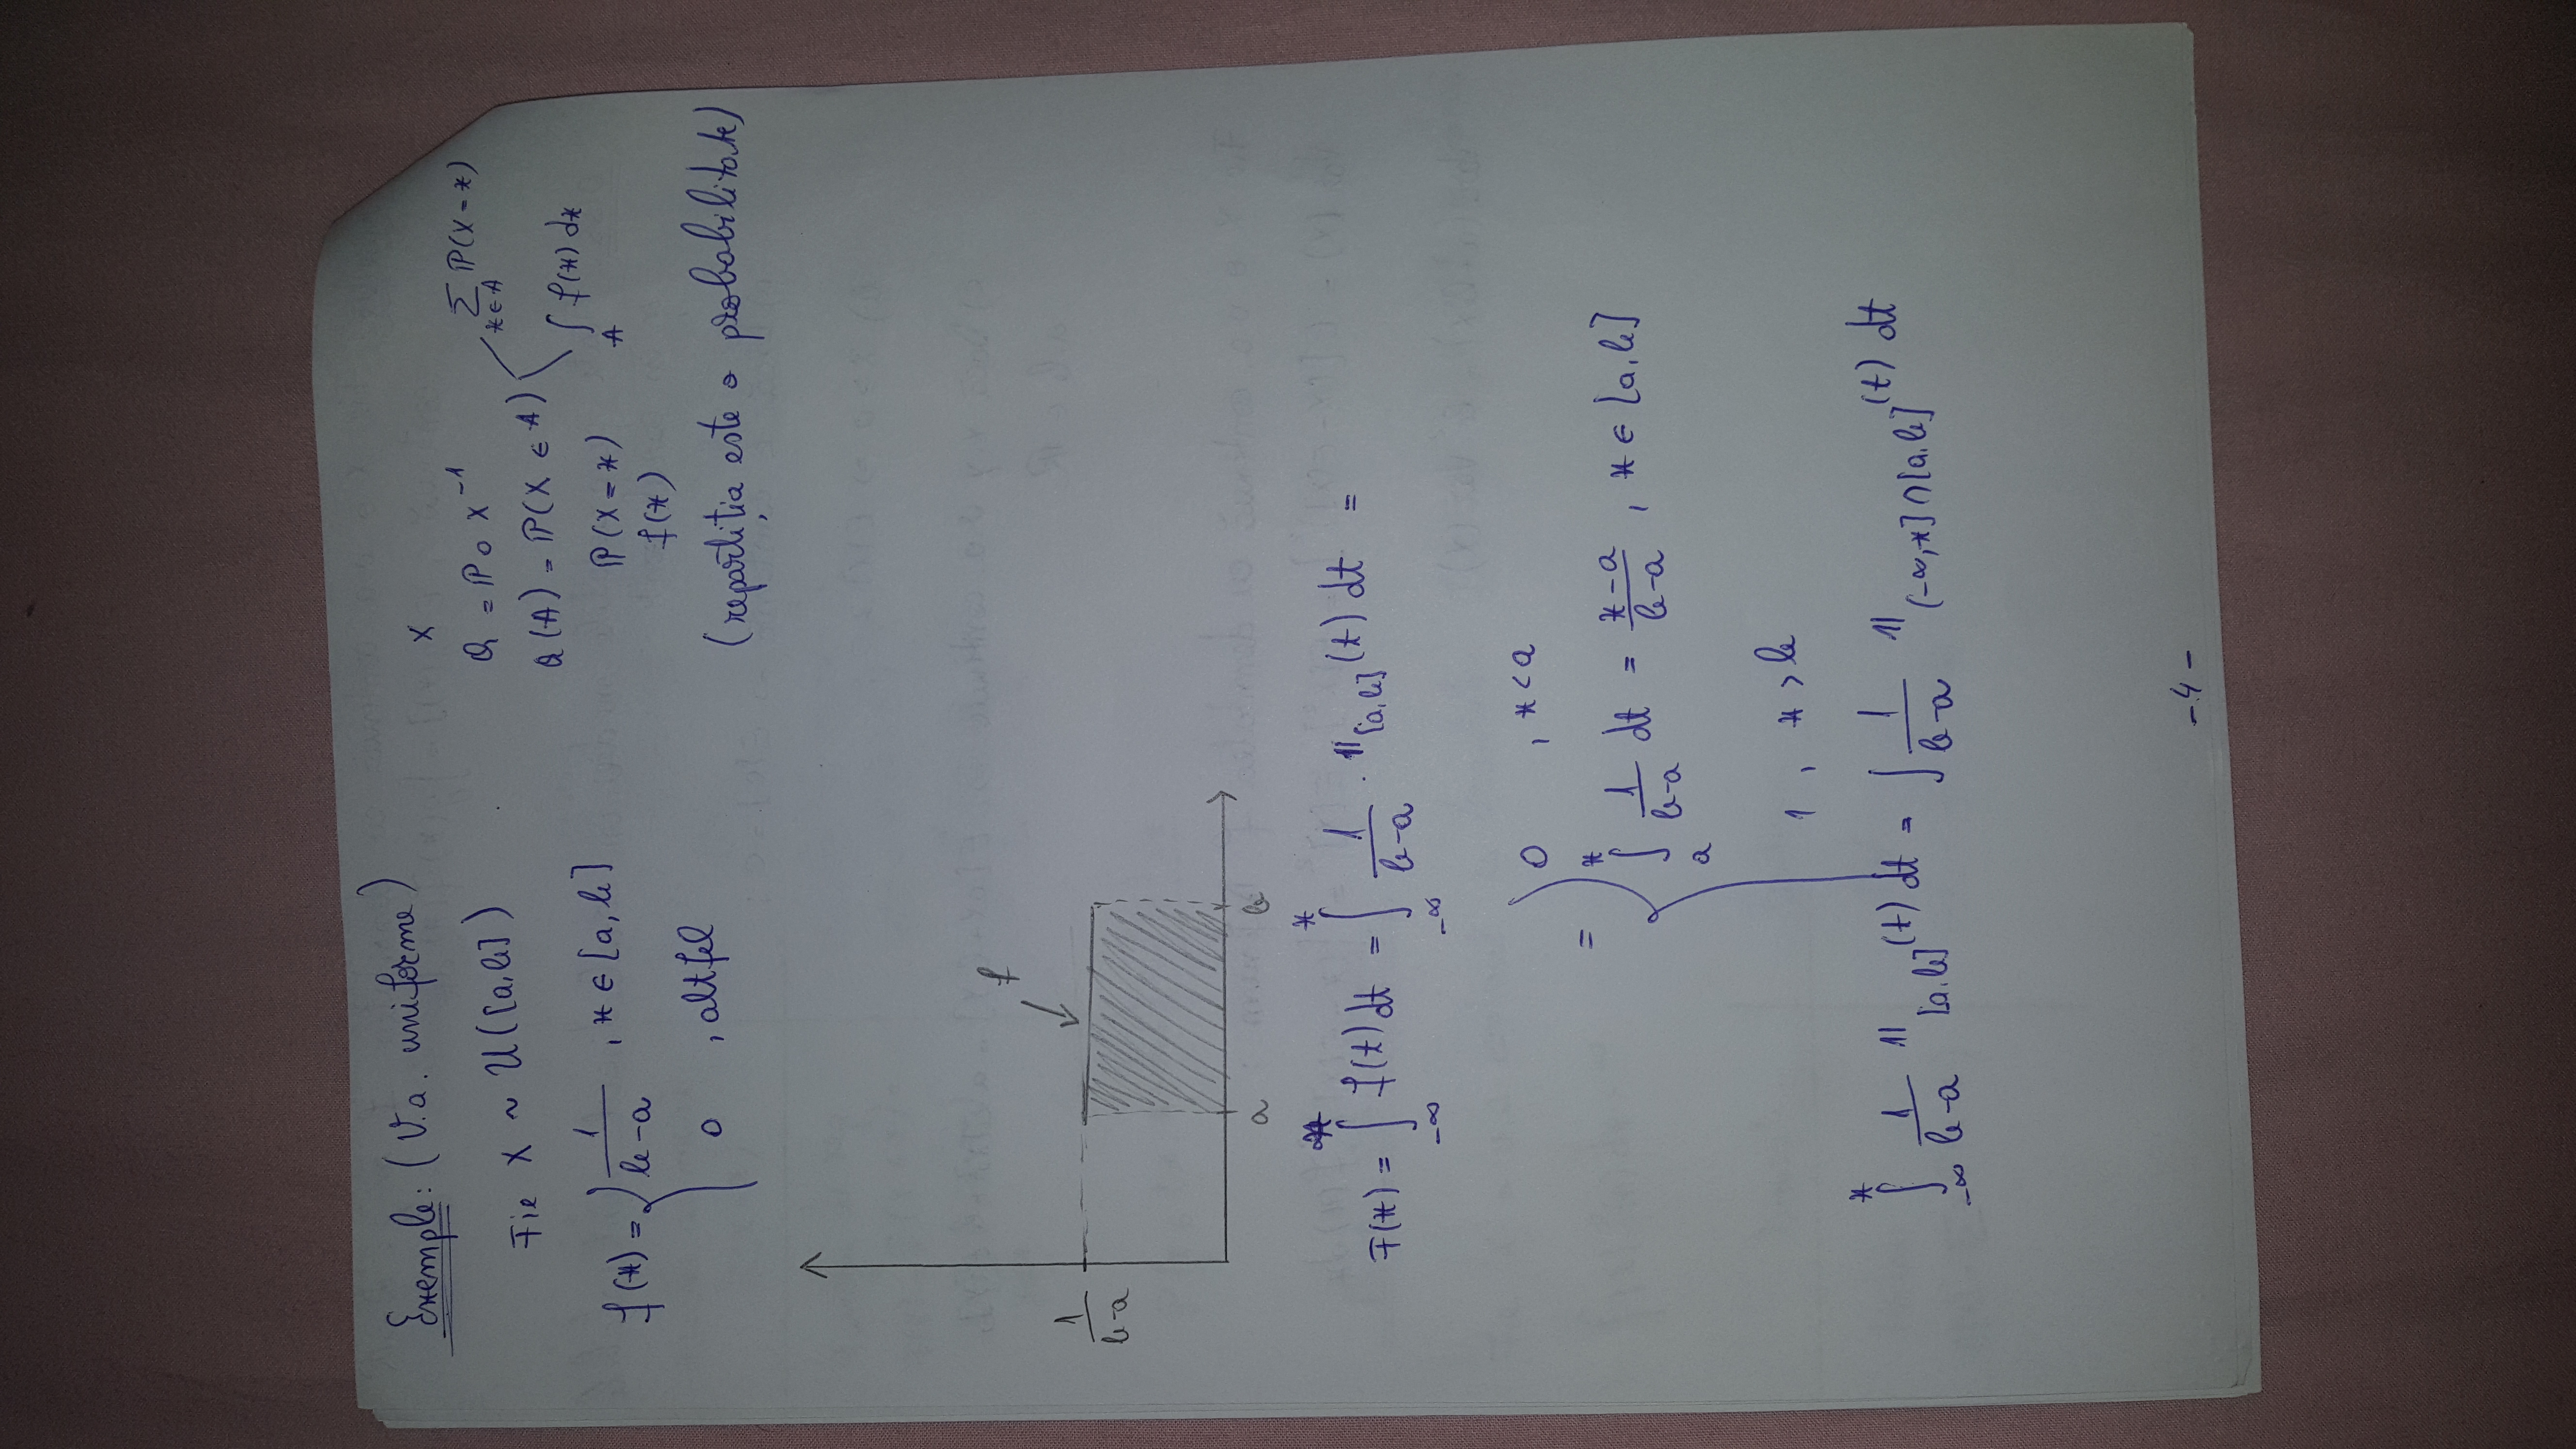 Exemple: (V.a. uniforme)
Fie X ~ U([a,b])
f(x) = { 1/(b-a) , x ∈ [a,b]
0 , altfel
X
Q = ℙ ∘ X⁻¹
Q(A) = ℙ(X ∈ A) < ∑_{x∈A} ℙ(X=x)
∫_A f(x) dx
ℙ(X=x)
f(x)
(repartiția este o probabilitate)
f
1/(b-a)
a b
F(x) = ∫_{-∞}^{x} f(t) dt = ∫_{-∞}^{x} 1/(b-a) · 𝟙_{[a,b]}(t) dt =
= { 0 , x < a
∫_{a}^{x} 1/(b-a) dt = (x-a)/(b-a) , x ∈ [a,b]
1 , x > b
∫_{-∞}^{x} 1/(b-a) 𝟙_{[a,b]}(t) dt = ∫ 1/(b-a) 𝟙_{(-∞,x]∩[a,b]}(t) dt
-4-